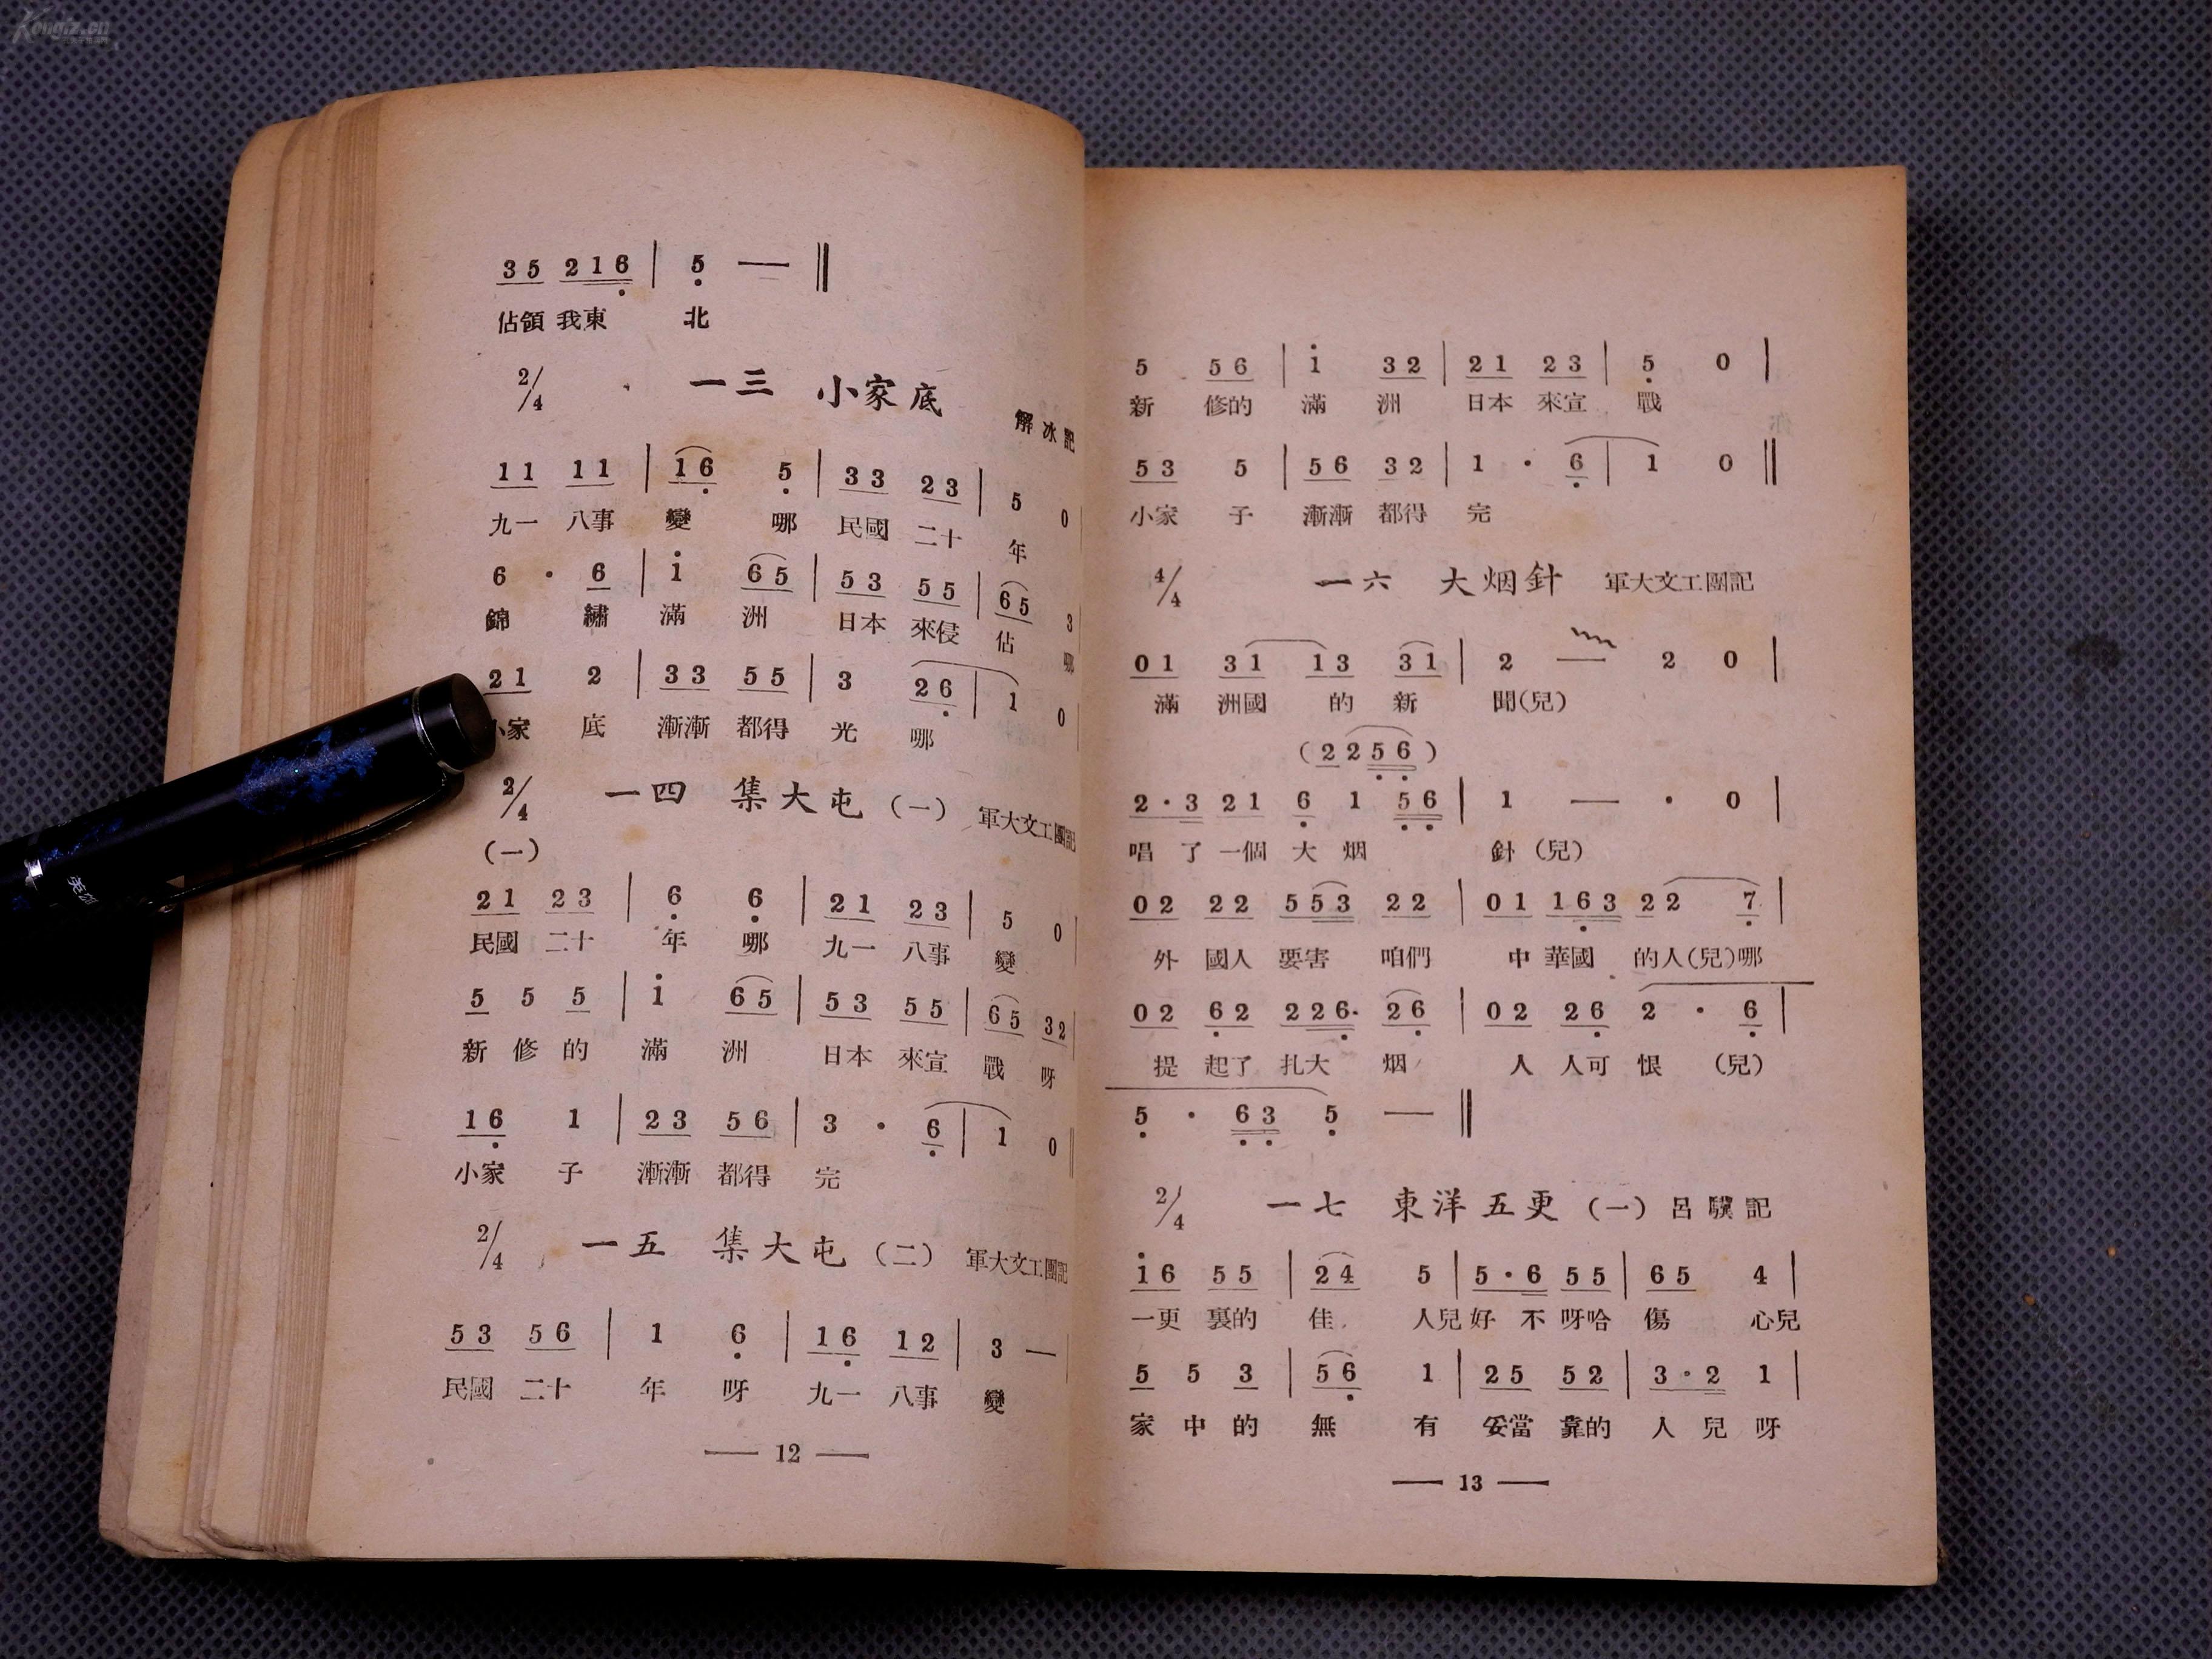 Kongfz.cn
35 216 | 5 — ‖
佔領 我東 北
2/4 一三 小家底
解冰記
11 11 | 16 5 | 33 23 | 5 0
九一 八事 變 哪 民國 二十 年
6 · 6 | i 65 | 53 55 | 65 3
錦 繡 滿 洲 日本 來侵 佔 哪
21 2 | 33 55 | 3 26 | 1 0
小家 底 漸漸 都得 光 哪
2/4 一四 集大屯（一） 軍大文工團記
（一）
21 23 | 6 6 | 21 23 | 5 0
民國 二十 年 哪 九一 八事 變
5 5 5 | i 65 | 53 55 | 65 32
新 修 的 滿 洲 日本 來宣 戰 呀
16 1 | 23 56 | 3 · 6 | 1 0
小家 子 漸漸 都得 完
2/4 一五 集大屯（二） 軍大文工團記
53 56 | 1 6 | 16 12 | 3 —
民國 二十 年 呀 九一 八事 變
— 12 —
5 56 | i 32 | 21 23 | 5 0 |
新 修的 滿 洲 日本 來宣 戰
53 5 | 56 32 | 1 · 6 | 1 0 ‖
小家 子 漸漸 都得 完
4/4 一六 大烟針 軍大文工團記
01 31 13 31 | 2 — 2 0 |
滿 洲國 的 新 聞(兒)
(2256)
2·3 21 6 1 56 | 1 — · 0 |
唱 了 一個 大 烟 針 (兒)
02 22 553 22 | 01 163 22 7 |
外 國人 要害 咱們 中 華國 的人(兒)哪
02 62 226· 26 | 02 26 2 · 6 |
提 起了 扎大 烟 人 人可 恨 (兒)
5 · 63 5 — ‖
2/4 一七 東洋五更（一）呂驥記
i6 55 | 24 5 | 5·6 55 | 65 4 |
一更 裏的 佳 人兒 好 不 呀哈 傷 心兒
5 5 3 | 56 1 | 25 52 | 3·2 1 |
家 中 的 無 有 妥當 靠的 人 兒 呀
— 13 —